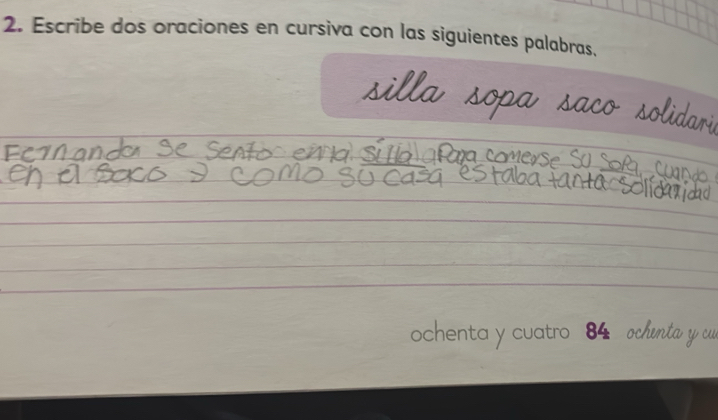 2. Escribe dos oraciones en cursiva con las siguientes palabras.
silla sopa saco solidari
Fernanda se sento en la silla Para comerse su sopa cuando
en el saco y como su casa estaba tanta solidaridad
ochenta y cuatro 84 ochenta y cu